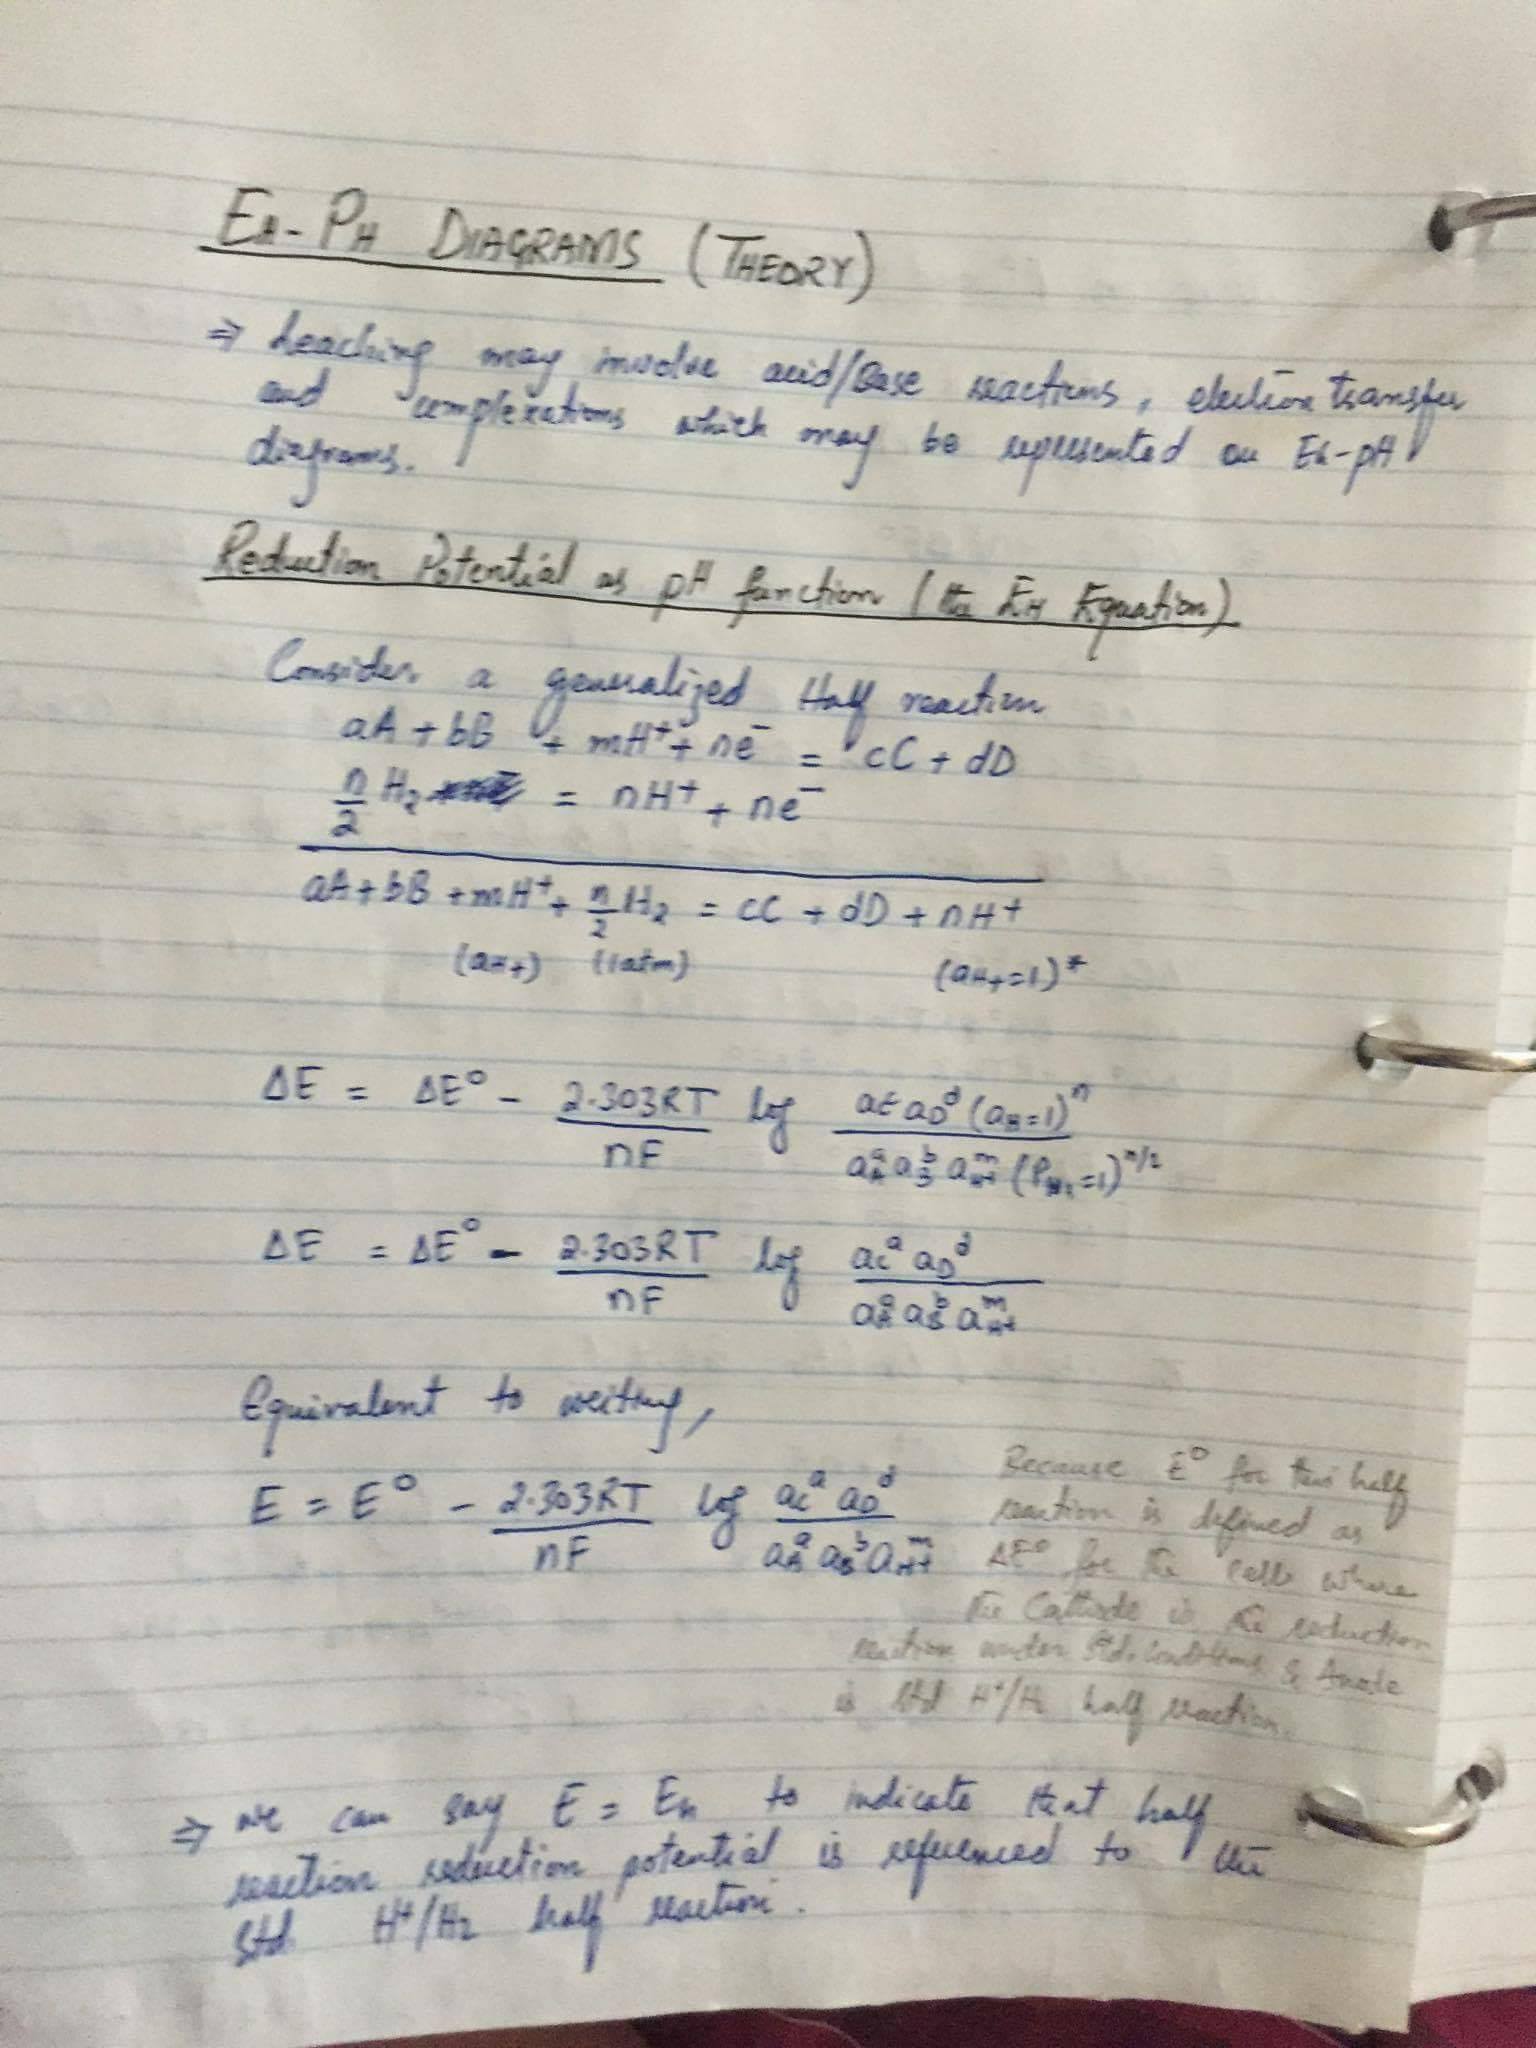 EH-PH DIAGRAMS (THEORY)
⇒ Leaching may involve acid/base reactions, electron transfer
and complexations which may be represented on Eh-pH
diagrams.
Reduction Potential as pH function (the EH Equation)
Consider a generalized Half reaction
aA + bB + mH⁺ + ne⁻ = cC + dD
n/2 H₂ = nH⁺ + ne⁻
aA + bB + mH⁺ + n/2 H₂ = cC + dD + nH⁺
(aH+) (1atm) (aH+=1)*
ΔE = ΔE° - 2.303RT/nF log aC^c aD^d (aH=1)^n / aA^a aB^b aH+^m (PH₂=1)^n/2
ΔE = ΔE° - 2.303RT/nF log aC^a aD^d / aA^a aB^b aH+^m
Equivalent to writing,
E = E° - 2.303RT/nF log aC^a aD^d / aA^a aB^b aH+^m
Because E° for this half
reaction is defined as
ΔE° for the cell where
the Cathode is the reduction
reaction under Std. conditions & Anode
is Std H⁺/H₂ half reaction.
⇒ we can say E = Eh to indicate that half
reaction reduction potential is referenced to the
Std. H⁺/H₂ half reaction.